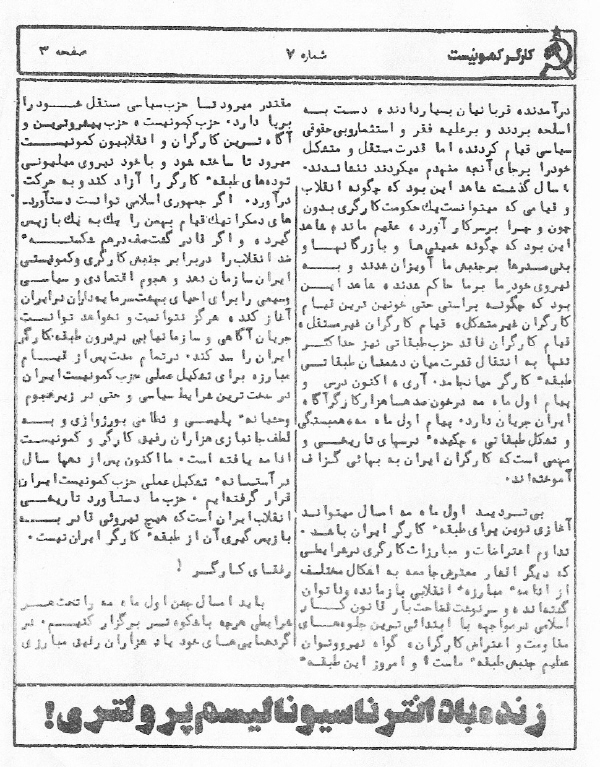 کارگر کمونیست
شماره ۷
صفحه ۳
درآمدند قربانیان بسیار دادند دست به
اسلحه بردند و بر علیه فقر و استثمار و بی حقوقی
سیاسی قیام کردند اما قدرت مستقل و متشکل
خود را بر جای آنچه منهدم میکردند ننشاندند.
سال گذشت شاهد این بود که چگونه انقلاب
و قیامی که میتوانست یک حکومت کارگری بدون
چون و چرا بر سر کار آورد، عقیم ماند، شاهد
این بود که چگونه خمینی ها و بازرگانها و
بنی صدرها بر جنبش ما آویزان شدند و به
نیروی خود ما بر ما حاکم شدند، شاهد این
بود که چگونه براستی حتی خونین ترین قیام
کارگران غیر متشکل، قیام کارگران غیر مستقل،
قیام کارگران فاقد حزب طبقاتی نیز حداکثر
تنها به انتقال قدرت میان دشمنان طبقاتی
طبقه کارگر میانجامد. آری، اکنون درس و
پیام اول ماه مه در خون صدها هزار کارگر آگاه
ایران جریان دارد. پیام اول ماه مه، همبستگی
و تشکل طبقاتی، چکیده درسهای تاریخی و
مهمی است که کارگران ایران به بهائی گزاف
آموخته اند.
بی تردید اول ماه مه امسال میتواند
آغازی نوین برای طبقه کارگر ایران باشد.
تداوم اعتراضات و مبارزات کارگری در شرایطی
که دیگر اقشار معترض جامعه به اشکال مختلف
از ادامه مبارزه انقلابی بازمانده و ناتوان
گشته اند، و سرنوشت فضاحت بار قانون کار
اسلامی در مواجهه با ابتدائی ترین جلوه های
مقاومت و اعتراض کارگران، گواه نیرو و توان
عظیم جنبش طبقه ماست! و امروز این طبقه
مقتدر میرود تا حزب سیاسی مستقل خود را
برپا دارد. حزب کمونیست، حزب پیشروترین و
آگاه ترین کارگران و انقلابیون کمونیست
میرود تا ساخته شود و با خود نیروی میلیونی
توده های طبقه کارگر را آزاد کند و به حرکت
درآورد. اگر جمهوری اسلامی توانست دستآورد
های دمکراتیک قیام بهمن را یک به یک بازپس
گیرد، و اگر قادر گشت صف درهم شکسته
ضد انقلاب را در برابر جنبش کارگری و کمونیستی
ایران سازمان دهد و هجوم اقتصادی و سیاسی
وسیعی را برای احیای بهشت سرمایه داران در ایران
آغاز کند، هرگز نتوانست و نخواهد توانست
جریان آگاهی و سازمانیابی در درون طبقه کارگر
ایران را سد کند. در تمام مدت پس از قیام
مبارزه برای تشکیل عملی حزب کمونیست ایران
در سخت ترین شرایط سیاسی و حتی در زیر هجوم
وحشیانه پلیسی و نظامی بورژوازی و به
لطف جانبازی هزاران رفیق کارگر و کمونیست
ادامه یافته است. ما اکنون پس از تنها سال
در آستانه تشکیل عملی حزب کمونیست ایران
قرار گرفته ایم. حزب ما دستآورد تاریخی
انقلاب ایران است که هیچ نیروئی قادر به
بازپس گیری آن از طبقه کارگر ایران نیست.
رفقای کارگر!
باید امسال جشن اول ماه مه را تحت هر
شرایطی هر چه باشکوه تر برگزار کنیم. در
گردهمایی های خود یاد هزاران رفیق مبارزی
زنده باد انترناسیونالیسم پرولتری!